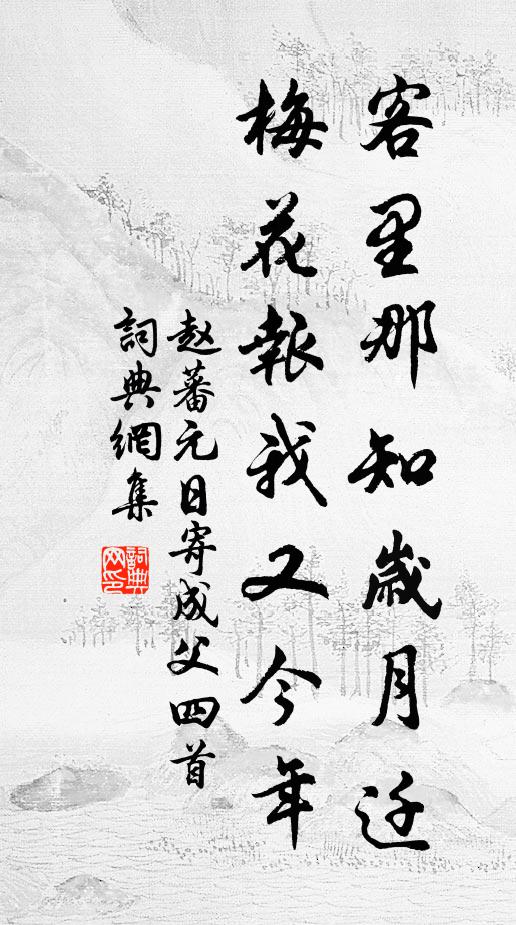 客里那知歲月迁
梅花報我又今年
赵蕃元日寄成父四首
詞典網集
詞典網印